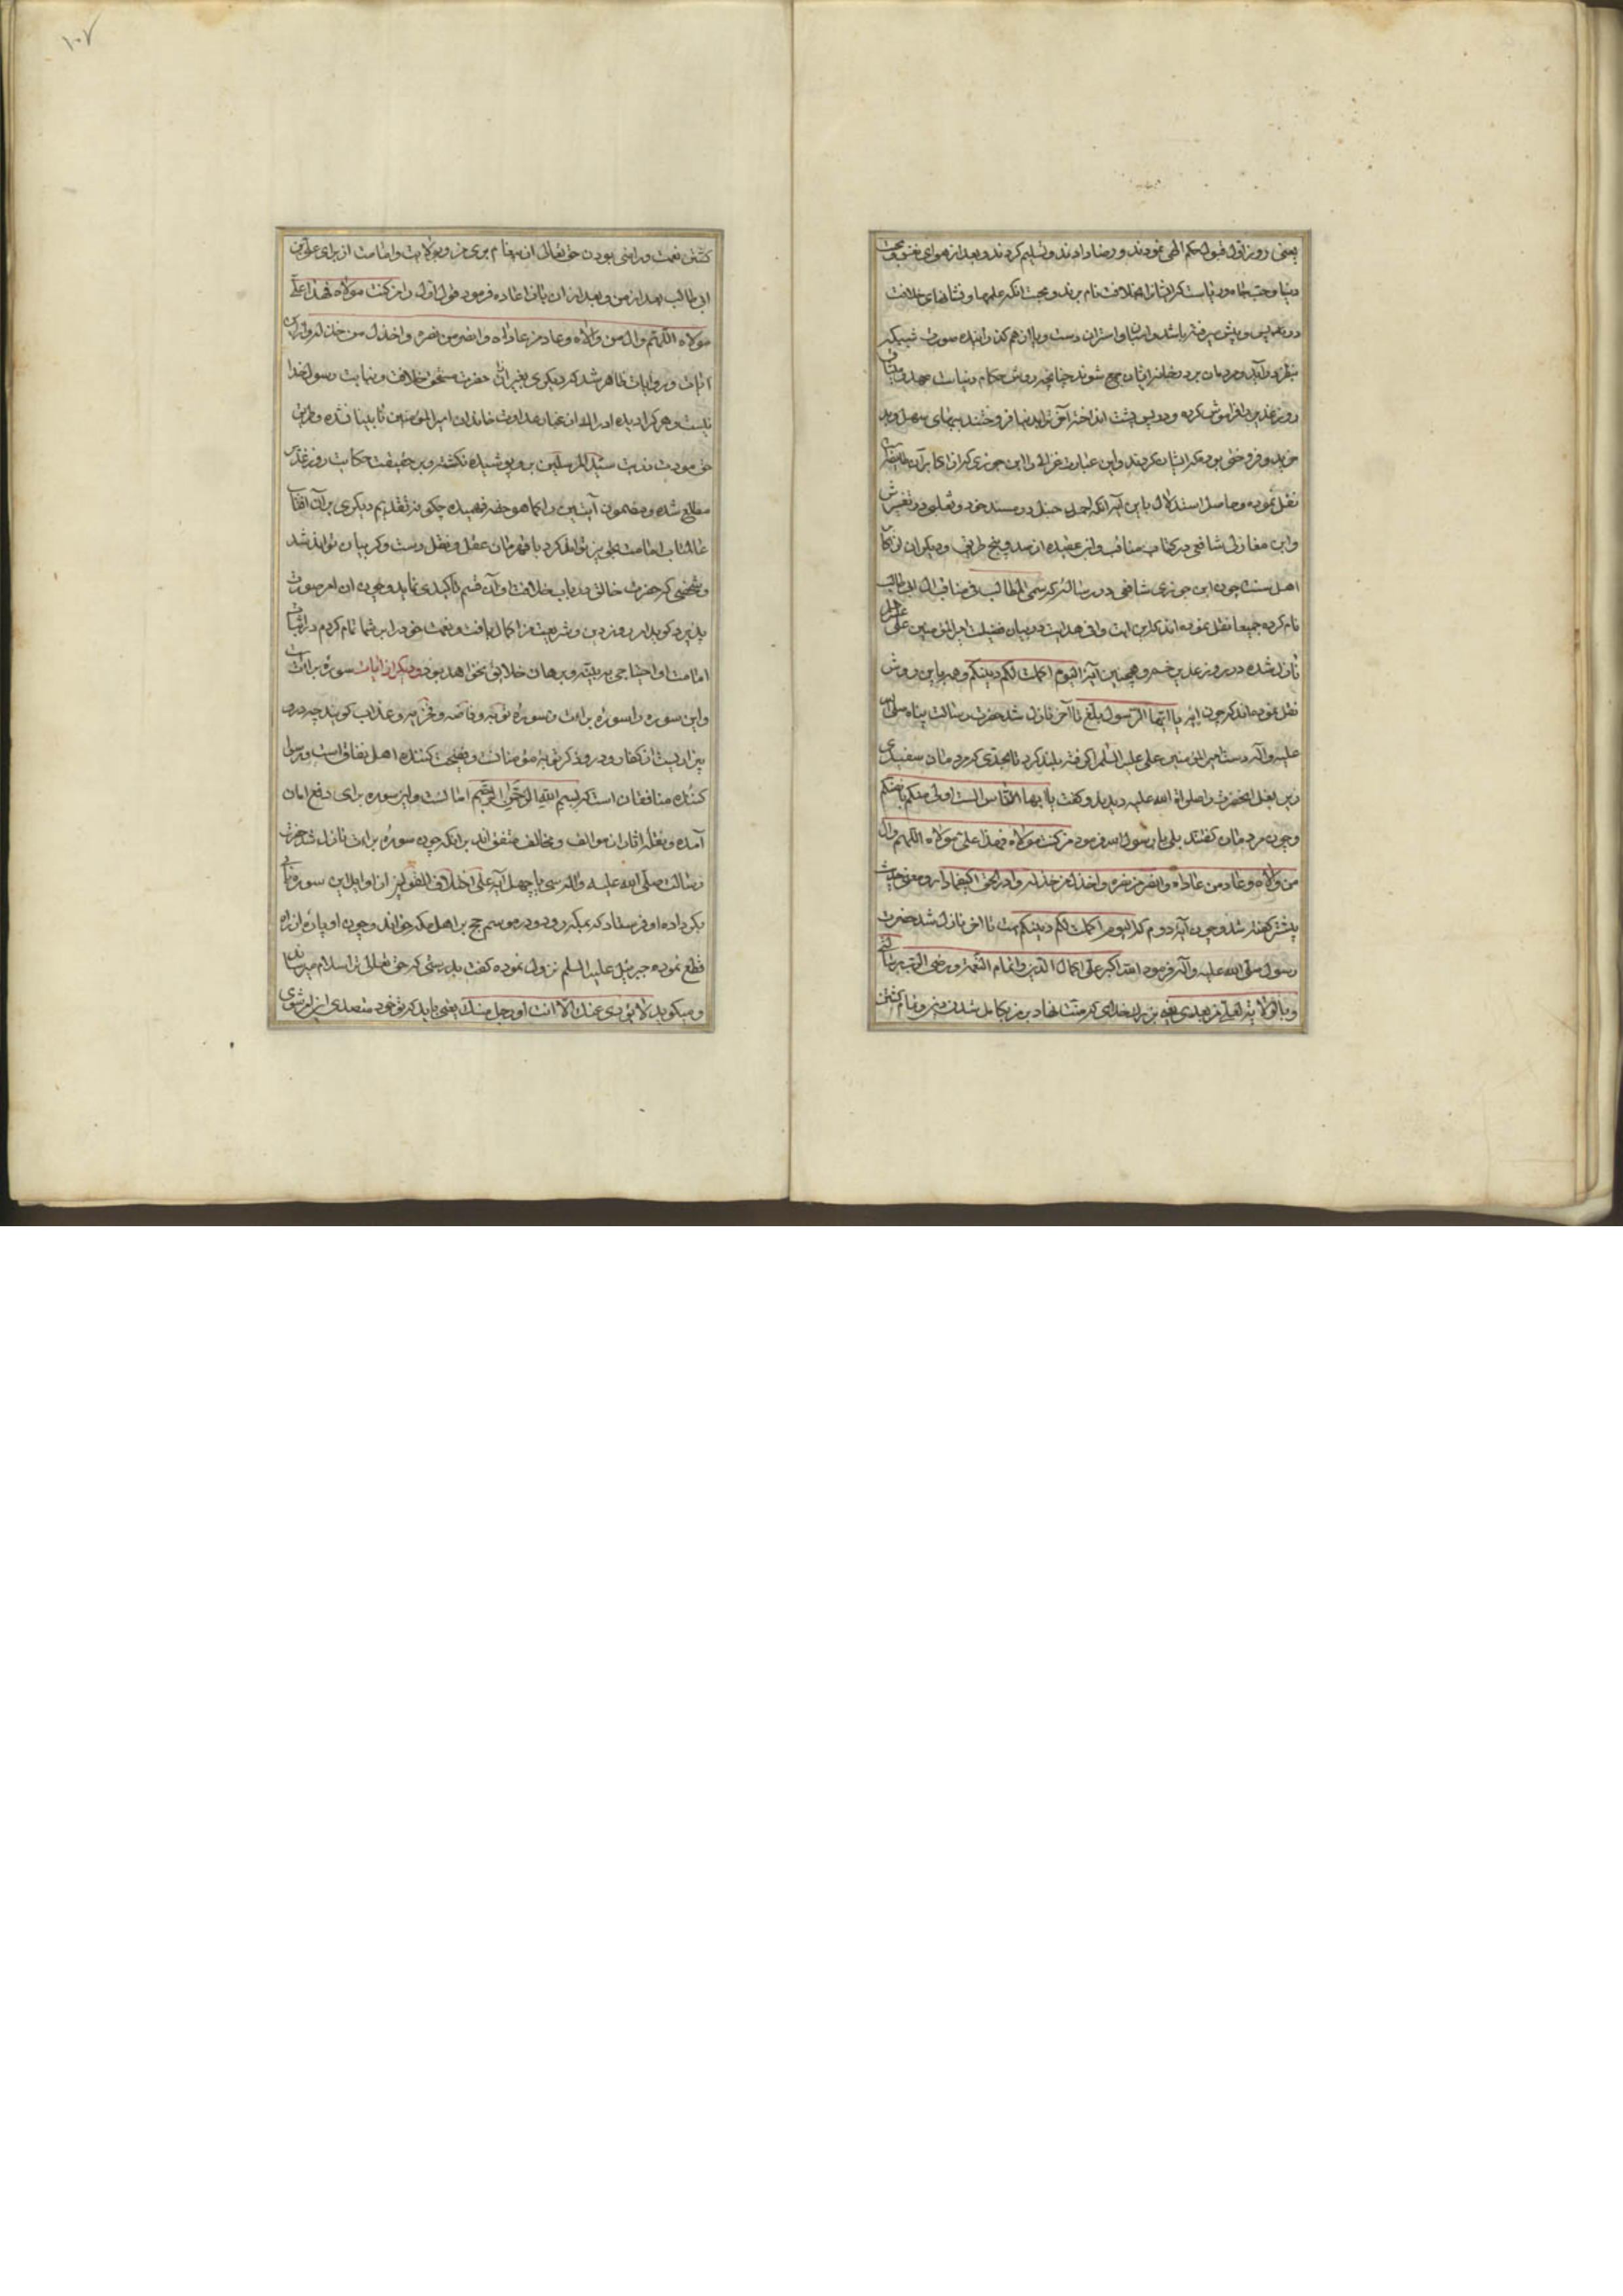 یعنی روز اول قبول حکم الهی نمودند و رضا دادند و تسلیم کردند و بعد از هوای نفس و محبت
دنیا و حب جاه و ریاست که ایشانرا بخلافت نام برند و بجهت آنکه علمها و نشانهای خلافت
در پس و پیش میرفته باشد و اسبان و استران دست و پا از هم گذرانیده صورت شبیکه
بنظر درآید و مردمان بر در خانه ایشان جمع شوند چنانچه روش حکام دنیاست عهد و میثاق
روز غدیر را فراموش کرده و در پس پشت انداخته آخرت را بدنیا فروختند ببهای سهل و بد
خرید و فروختی بود که ایشان کردند و این عبارت غزالی را ابن جوزی که از اکابر آن طایفه است
نقل نموده و حاصل استدلال باین آیه آنکه احمد حنبل در مسند خود و ثعلبی در تفسیرش
و ابن مغازلی شافعی در کتاب مناقب و ابن عقیده از صد و پنج طریق و دیگران از اکابر
اهل سنت چون ابن جوزی شافعی در رساله که مسمی المطالب فی مناقب ال ابی طالب
نام کرده جمیعا نقل نموده اند که این آیت وافی هدایت در بیان فضیلت امیرالمؤمنین علی علیه السلم
نازل شده در روز غدیر خم و همچنین آیه الیوم اکملت لکم دینکم و همه باین روش
نقل نموده‌اند که چون آیه یا ایها الرسول بلغ تا آخر نازل شد حضرت رسالت پناه صلی الله
علیه و آله دست امیرالمؤمنین علی علیه السلم را گرفته بلند کرد تا بحدی که مردمان سفیدی
زیر بغل آنحضرت را صلی الله علیه دیدند و گفت یا ایها الناس الست اولی منکم بانفسکم
و چون مردمان گفتند بلی یا رسول الله فرمود من کنت مولاه فهذا علی مولاه اللهم وال
من والاه و عاد من عاداه وانصر من نصره واخذل من خذله وادر الحق کیفما دار و معنی حدیث
پیشتر گفته شد و چون آیه دوم که الیوم اکملت لکم دینکم است تا آخر نازل شد حضرت
رسول صلی الله علیه و آله فرمود الله اکبر علی اکمال الدین و اتمام النعمة و رضی الرب برسالتی
و بالولایة لعلی من بعدی یعنی بزرگ خدای که منت نهاد بر من بکامل شدن دین و تمام گشتن
گشتن نعمت و راضی بودن حق تعالی از پیغام بری من و بولایت و امامت از برای علی بن
ابی طالب بعد از من و بعد از آن باز اعاده فرمود قول اول را من کنت مولاه فهذا علی
مولاه اللهم وال من والاه و عاد من عاداه وانصر من نصره واخذل من خذله و از این
آیات و روایات ظاهر شد که دیگری بغیر آن حضرت مستحق خلافت و نیابت رسول خدا
نیست و هر کرا دیده ادراک از غبار عداوت خاندان امیرالمؤمنین نابینا نشده و طریق
حق مودت ذریت سید المرسلین برو پوشیده نگشته و بر حقیقت حکایت روز غدیر
مطلع شده و مضمون آیتین را کما هو حقه فهمیده چگونه تقدیم دیگری بر آن آفتاب
عالمتاب امامت تجویز تواند کرد با فرمان عقل و نقل درست و کر بیان تواند شد
و شخصی که حضرت خالق در باب خلافت او آن قسم تأکیدی نماید و چون آن امر صورت
پذیرد گوید امروز دین و شریعت من اکمال یافت و نعمت خود را بر شما تمام کردم در اثبات
امامت او احتیاجی به بینه و برهان خلایق نخواهد بود و دیگر از آیات سوره براءت
و این سوره را سوره براءت و سوره توبه و فاضحه و مخزیه و عذاب گویند چه در و
بیزاریست از کفار و درو ذکر توبهٔ مؤمنانست و فضیحت کننده اهل نفاق است و رسوا
کننده منافقان است که بسم الله الرحمن الرحیم امانست و این سوره برای رفع امان
آمده و نقله آثار از موالف و مخالف متفق اند بر آنکه چون سوره براءت نازل شد حضرت
رسالت صلی الله علیه و آله سی یا چهل آیه علی اختلاف القولین از اوایل این سوره بابی
بکر داده او فرستاد که بمکه رود و در موسم حج بر اهل مکه خواند و چون او پاره از راه
قطع نموده جبرئیل علیه السلم نزول نموده گفت بدرستی که حق تعالی ترا سلام میرساند
و میگوید لا یؤدی عنک الا انت او رجل منک یعنی باید که تو خود متصدی این امر شوی
۱۰۷